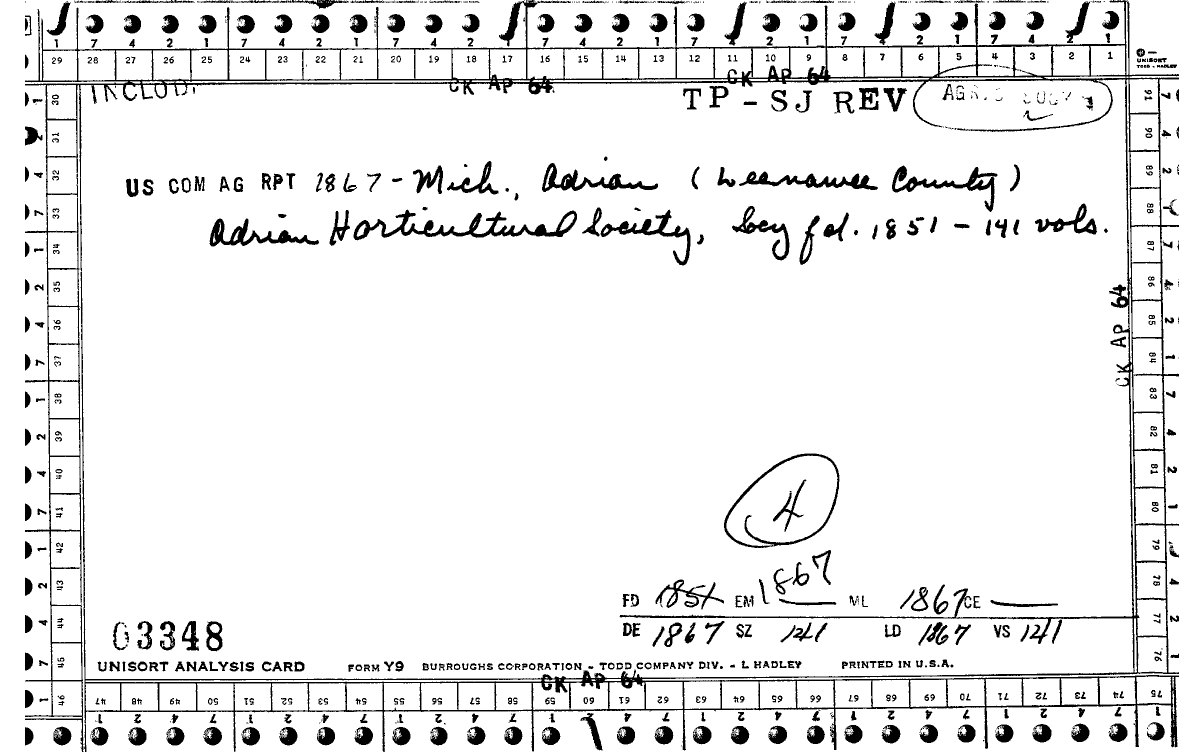 7 4 2 1 7 4 2 1 7 4 2 1 7 4 2 1 7 4 2 1 7 4 2 1 7 4 2 1
29 28 27 26 25 24 23 22 21 20 19 18 17 16 15 14 13 12 11 10 9 8 7 6 5 4 3 2 1
UNISORT
TODD - HADLEY
CK AP 64 CK AP 64
TP - SJ REV
US COM AG RPT 1867 - Mich., Adrian (Leenawee County)
Adrian Horticultural Society, Socy fd. 1851 - 141 vols.
CK AP 64
4
1867
FD 1851 EM ML 1867 CE
DE 1867 SZ 141 LD 1867 VS 141
03348
UNISORT ANALYSIS CARD FORM Y9 BURROUGHS CORPORATION - TODD COMPANY DIV. - L HADLEY PRINTED IN U.S.A.
CK AP 64
30 31 32 33 34 35 36 37 38 39 40 41 42 43 44 45 46
47 48 49 50 51 52 53 54 55 56 57 58 59 60 61 62 63 64 65 66 67 68 69 70 71 72 73 74 75
91 90 89 88 87 86 85 84 83 82 81 80 79 78 77 76